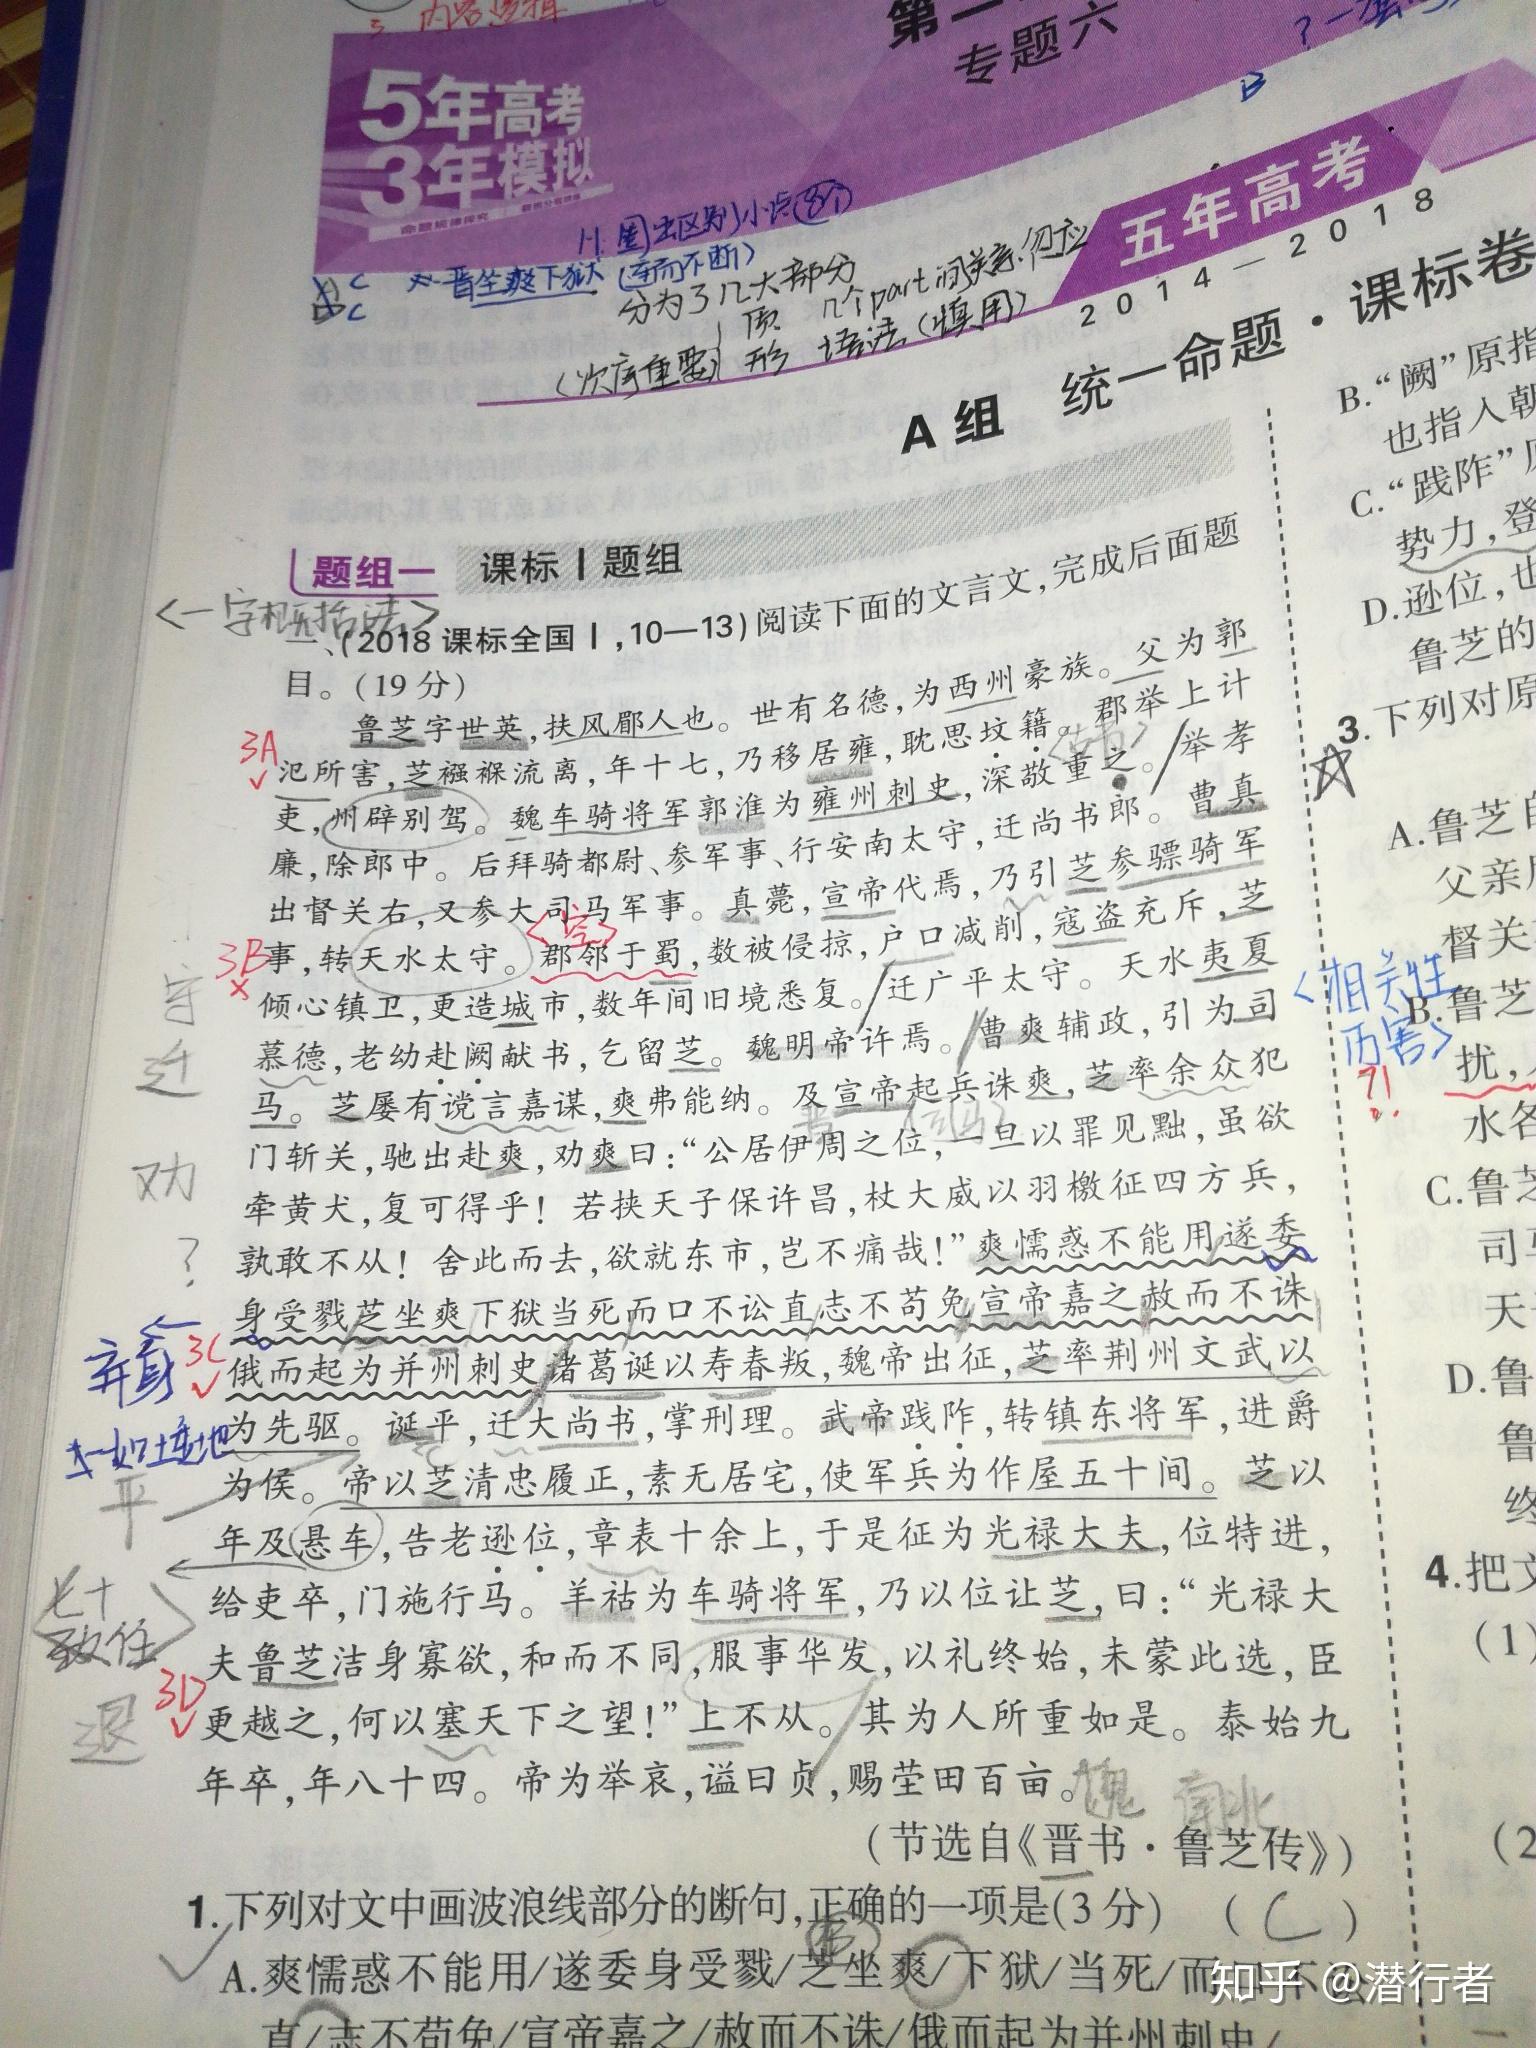 3. 内容逻辑
第一
专题六
5年高考
3年模拟
B
五年高考
2014—2018
11.圈出区别小点(8个)
晋坐爽下狱(连而不断)
分为了几大部分
几个part间关系.
(次序重要)
质
形
语法(慎用)
统一命题·课标卷
A组
题组一
课标Ⅰ题组
<一字概括法>
一、(2018课标全国Ⅰ,10—13)阅读下面的文言文,完成后面题
目。(19分)
鲁芝字世英,扶风郿人也。世有名德,为西州豪族。父为郭
氾所害,芝襁褓流离,年十七,乃移居雍,耽思坟籍。郡举上计
吏,州辟别驾。魏车骑将军郭淮为雍州刺史,深敬重之。举孝
廉,除郎中。后拜骑都尉、参军事、行安南太守,迁尚书郎。曹真
出督关右,又参大司马军事。真薨,宣帝代焉,乃引芝参骠骑军
事,转天水太守。郡邻于蜀,数被侵掠,户口减削,寇盗充斥,芝
倾心镇卫,更造城市,数年间旧境悉复。迁广平太守。天水夷夏
慕德,老幼赴阙献书,乞留芝。魏明帝许焉。曹爽辅政,引为司
马。芝屡有谠言嘉谋,爽弗能纳。及宣帝起兵诛爽,芝率余众犯
门斩关,驰出赴爽,劝爽曰:“公居伊周之位,一旦以罪见黜,虽欲
牵黄犬,复可得乎!若挟天子保许昌,杖大威以羽檄征四方兵,
孰敢不从!舍此而去,欲就东市,岂不痛哉!”爽懦惑不能用遂委
身受戮芝坐爽下狱当死而口不讼直志不苟免宣帝嘉之赦而不诛
俄而起为并州刺史诸葛诞以寿春叛,魏帝出征,芝率荆州文武以
为先驱。诞平,迁大尚书,掌刑理。武帝践阼,转镇东将军,进爵
为侯。帝以芝清忠履正,素无居宅,使军兵为作屋五十间。芝以
年及悬车,告老逊位,章表十余上,于是征为光禄大夫,位特进,
给吏卒,门施行马。羊祜为车骑将军,乃以位让芝,曰:“光禄大
夫鲁芝洁身寡欲,和而不同,服事华发,以礼终始,未蒙此选,臣
更越之,何以塞天下之望!”上不从。其为人所重如是。泰始九
年卒,年八十四。帝为举哀,谥曰贞,赐茔田百亩。
(节选自《晋书·鲁芝传》)
1.下列对文中画波浪线部分的断句,正确的一项是(3分) (C)
A.爽懦惑不能用/遂委身受戮/芝坐爽/下狱/当死/而口不讼
直/志不苟免/宣帝嘉之/赦而不诛/俄而起为并州刺史/
3A
3B
<空>
守
迁
劝
?
3C
弃身
平
七十
致仕
3D
退
魏 南北
B.“阙”原指
也指入朝
C.“践阼”原
势力,登
D.逊位,也
鲁芝的
3.下列对原
A.鲁芝自
父亲
督关
<相关性
历害>
?!
B.鲁芝
扰,
水各
C.鲁芝
司马
天
D.鲁
鲁
终
4.把文
(1)
(2
知乎 @潜行者